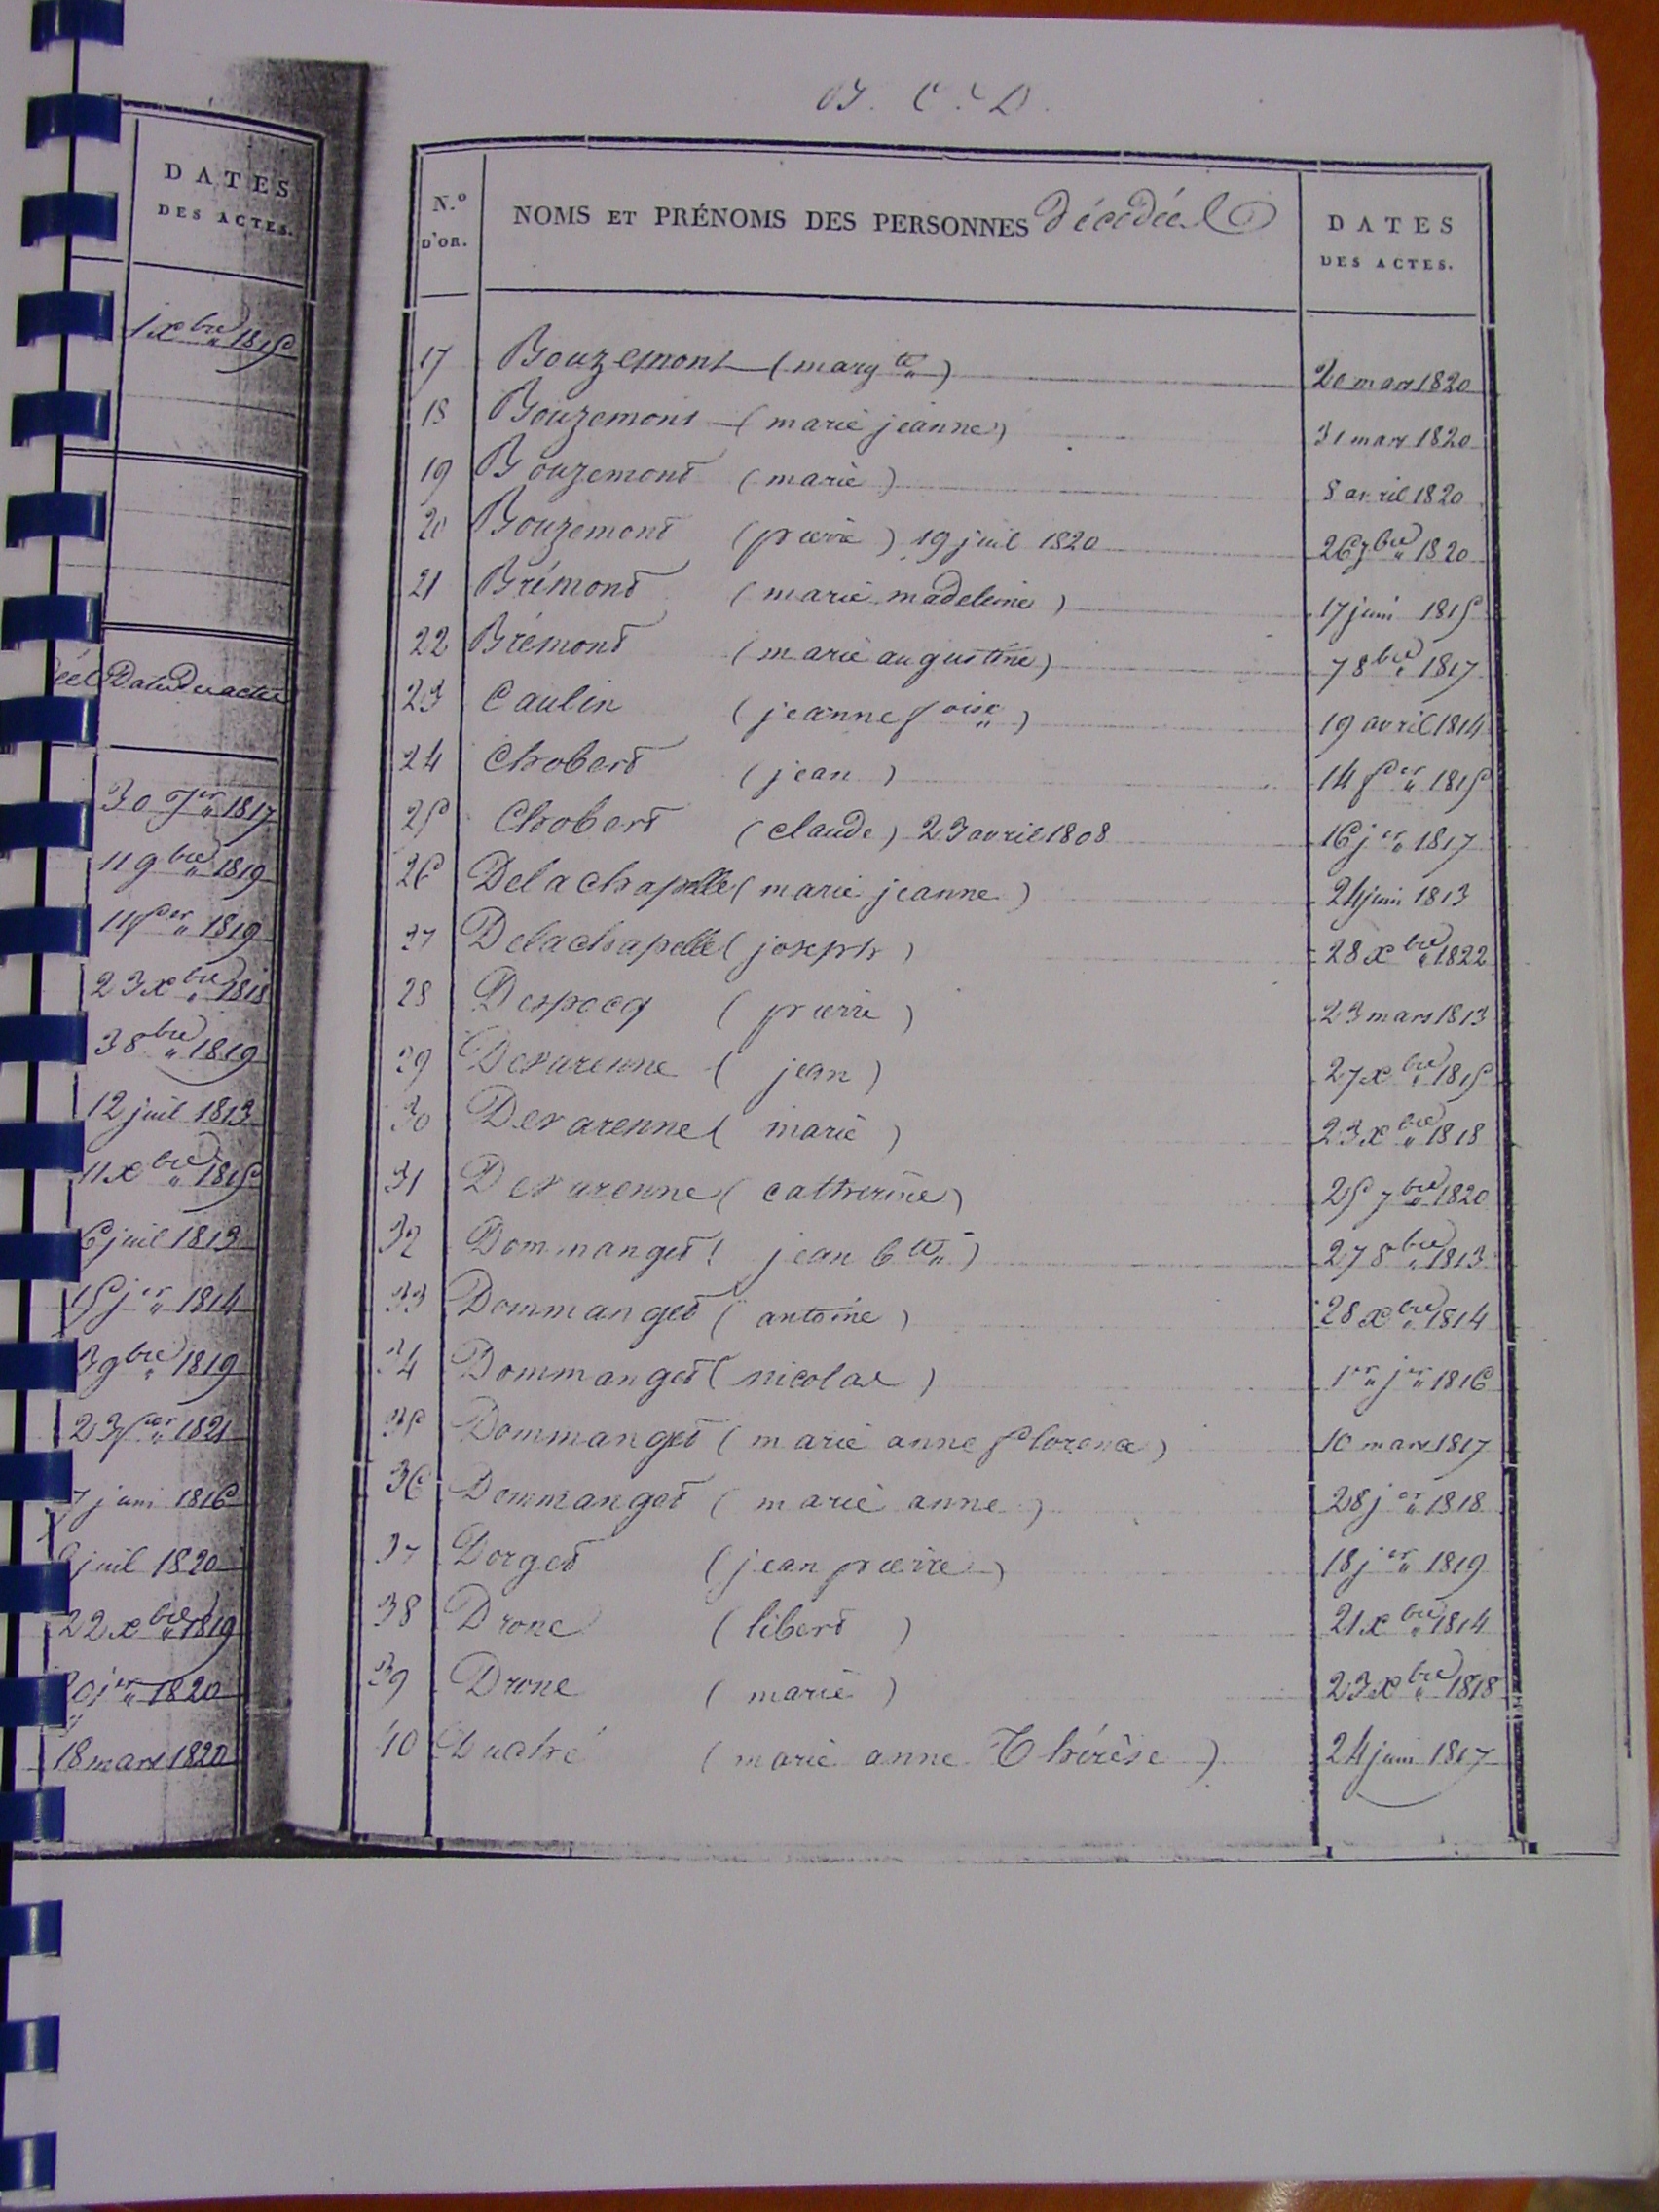 DATES
DES ACTES.
1 xbre 1815
Date des actes
30 jer 1817
11 9bre 1819
11 fer 1819
23 xbre 1818
3 8bre 1819
12 juil 1813
11 xbre 1815
6 juil 1813
15 jer 1814
3 9bre 1819
23 fer 1821
7 juin 1816
juil 1820
22 xbre 1819
20 jer 1820
18 mars 1820
B. C. D.
N.o D'OR.
NOMS ET PRÉNOMS DES PERSONNES décédées
DATES
DES ACTES.
17 Bouzemont (margte) 20 mars 1820
18 Bouzemont (marie jeanne) 31 mars 1820
19 Bouzemont (marie) 8 avril 1820
20 Bouzemont (pierre) 19 juil 1820 26 7bre 1820
21 Brémont (marie madeleine) 17 juin 1815
22 Brémont (marie augustine) 7 8bre 1817
23 Caulin (jeanne foise) 19 avril 1814
24 Chobert (jean) 14 fer 1815
25 Chobert (claude) 23 avril 1808 16 jer 1817
26 Delachapelle (marie jeanne) 24 juin 1813
27 Delachapelle (joseph) 28 xbre 1822
28 Despocq (pierre) 23 mars 1813
29 Devarenne (jean) 27 xbre 1815
30 Devarenne (marie) 23 xbre 1818
31 Devarenne (catherine) 25 7bre 1820
32 Dommanget (jean bte) 27 8bre 1813
33 Dommanget (antoine) 28 xbre 1814
34 Dommanget (nicolas) 1er jer 1816
35 Dommanget (marie anne florence) 10 mars 1817
36 Dommanget (marie anne) 28 jer 1818
37 Dorget (jean pierre) 18 jer 1819
38 Drone (libert) 21 xbre 1814
39 Drone (marie) 23 xbre 1818
40 Duché (marie anne Thérèse) 24 juin 1817